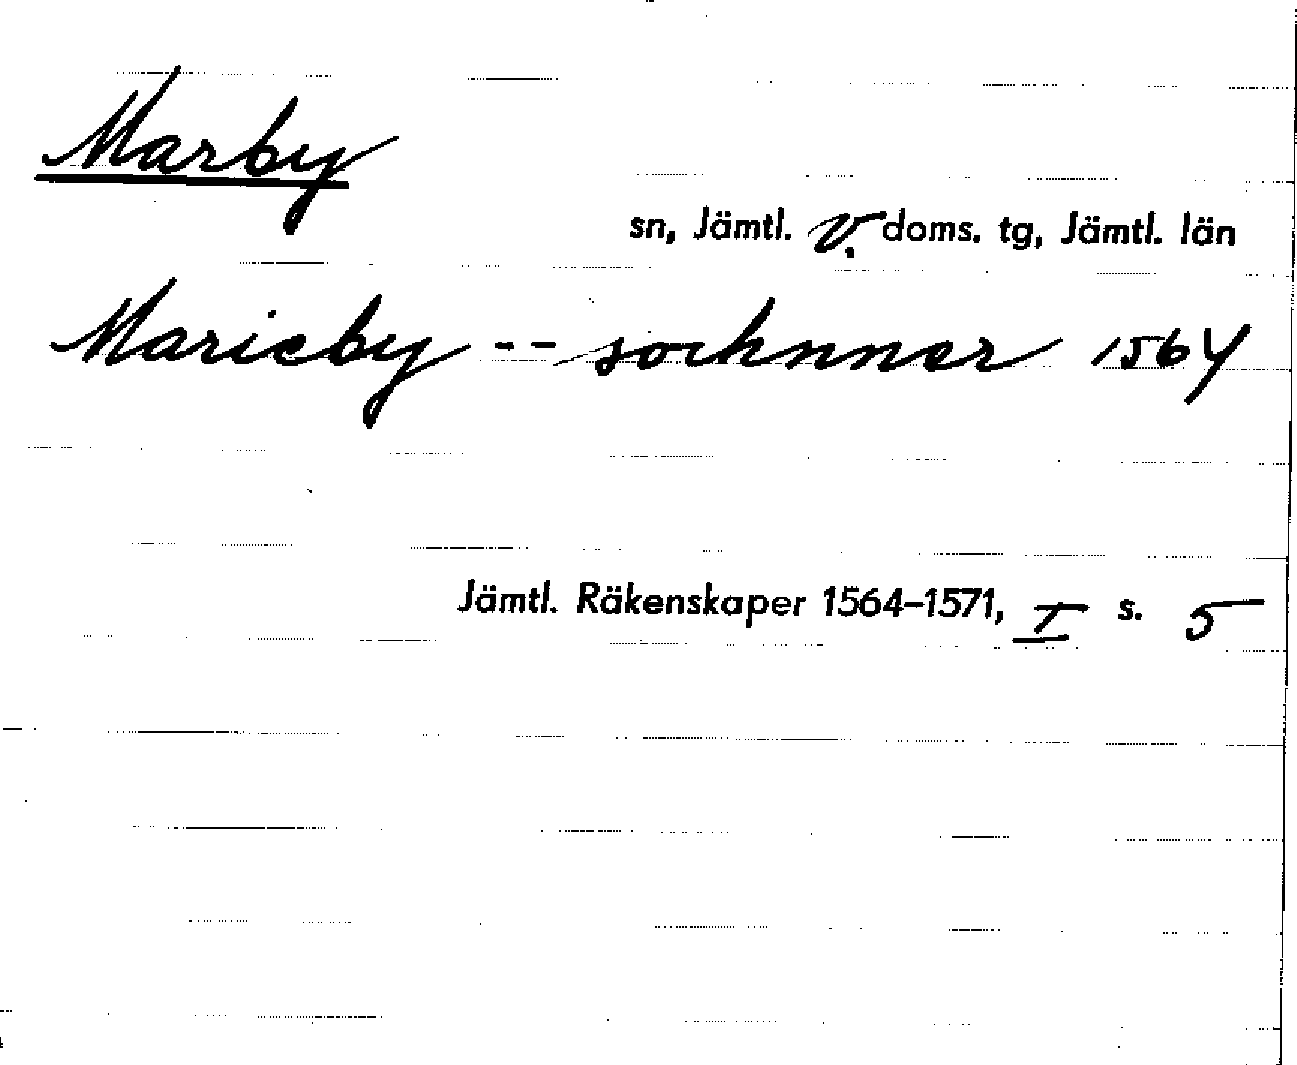 Marby
sn, Jämtl. v. doms. tg, Jämtl. län
Marieby -- sochnner 1564
Jämtl. Räkenskaper 1564-1571, I s. 5